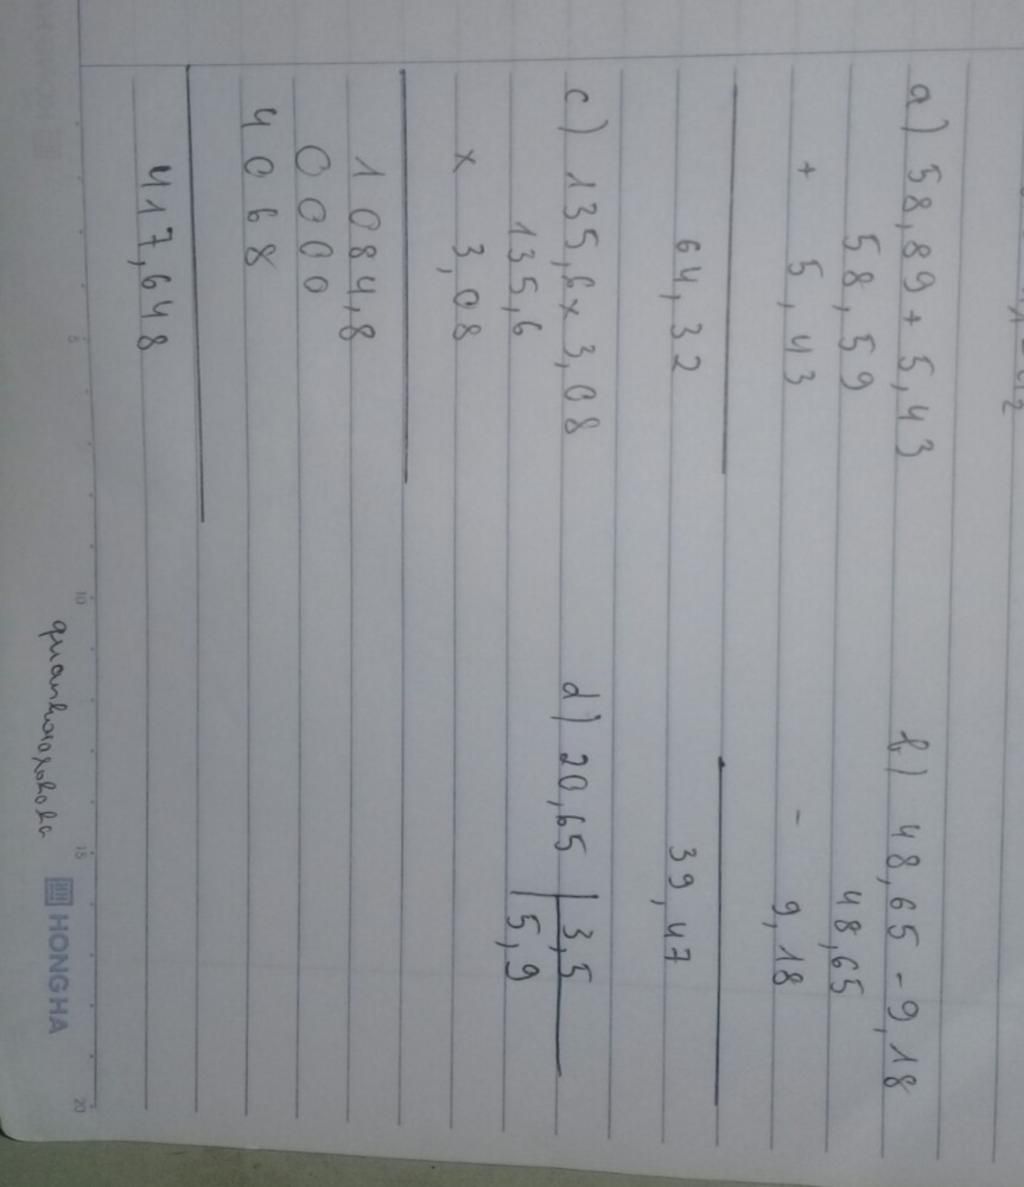 a) 58,89 + 5,43
58,59
+ 5,43
64,32
b) 48,65 - 9,18
48,65
- 9,18
39,47
c) 135,6 x 3,08
135,6
x 3,08
1084,8
0000
4068
417,648
d) 20,65 | 3,5
5,9
HONG HA
5
10
15
20